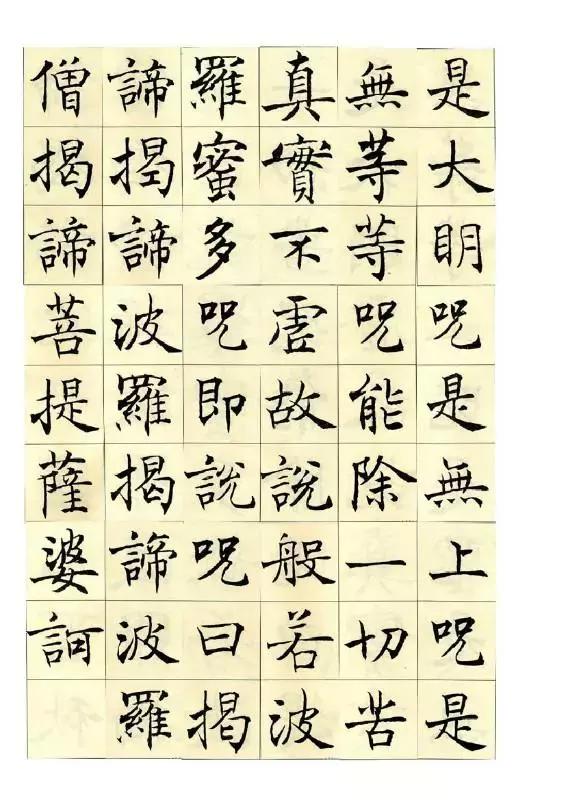 是大明呪是無上呪是
無等等呪能除一切苦
真實不虛故說般若波
羅蜜多呪即說呪曰揭
諦揭諦波羅揭諦波羅
僧揭諦菩提薩婆訶